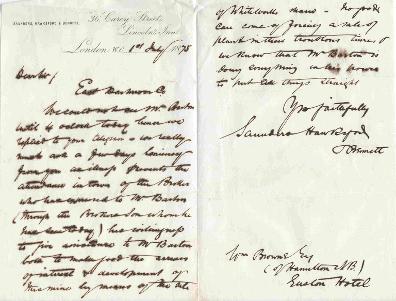 SAUNDERS, HAWKSFORD & BENNETT.
36, Carey Street,
Lincoln's Inn,
London, W.C. 1st July 1875
Dear Sir
East
We could not see Mr Barton
until 4 oclock today hence we
replied to your & we really
must ask a few days
from you as illness prevents the
attendance in town of the Broker
who has to Mr Barton
(through the Brother son whom he
has sent today) his willingness
to give assistance to Mr Barton
both to make good the arrears
of interest & development of
the mine by means of the sale
of shares - No good
can come of forcing a sale of
plant in these times &
we know that Mr Barton is
doing everything in his power
to put all things straight
Yrs faithfully
Saunders Hawksford
& Bennett
Wm Browne Esq
(of Hamilton N.B.)
Euston Hotel